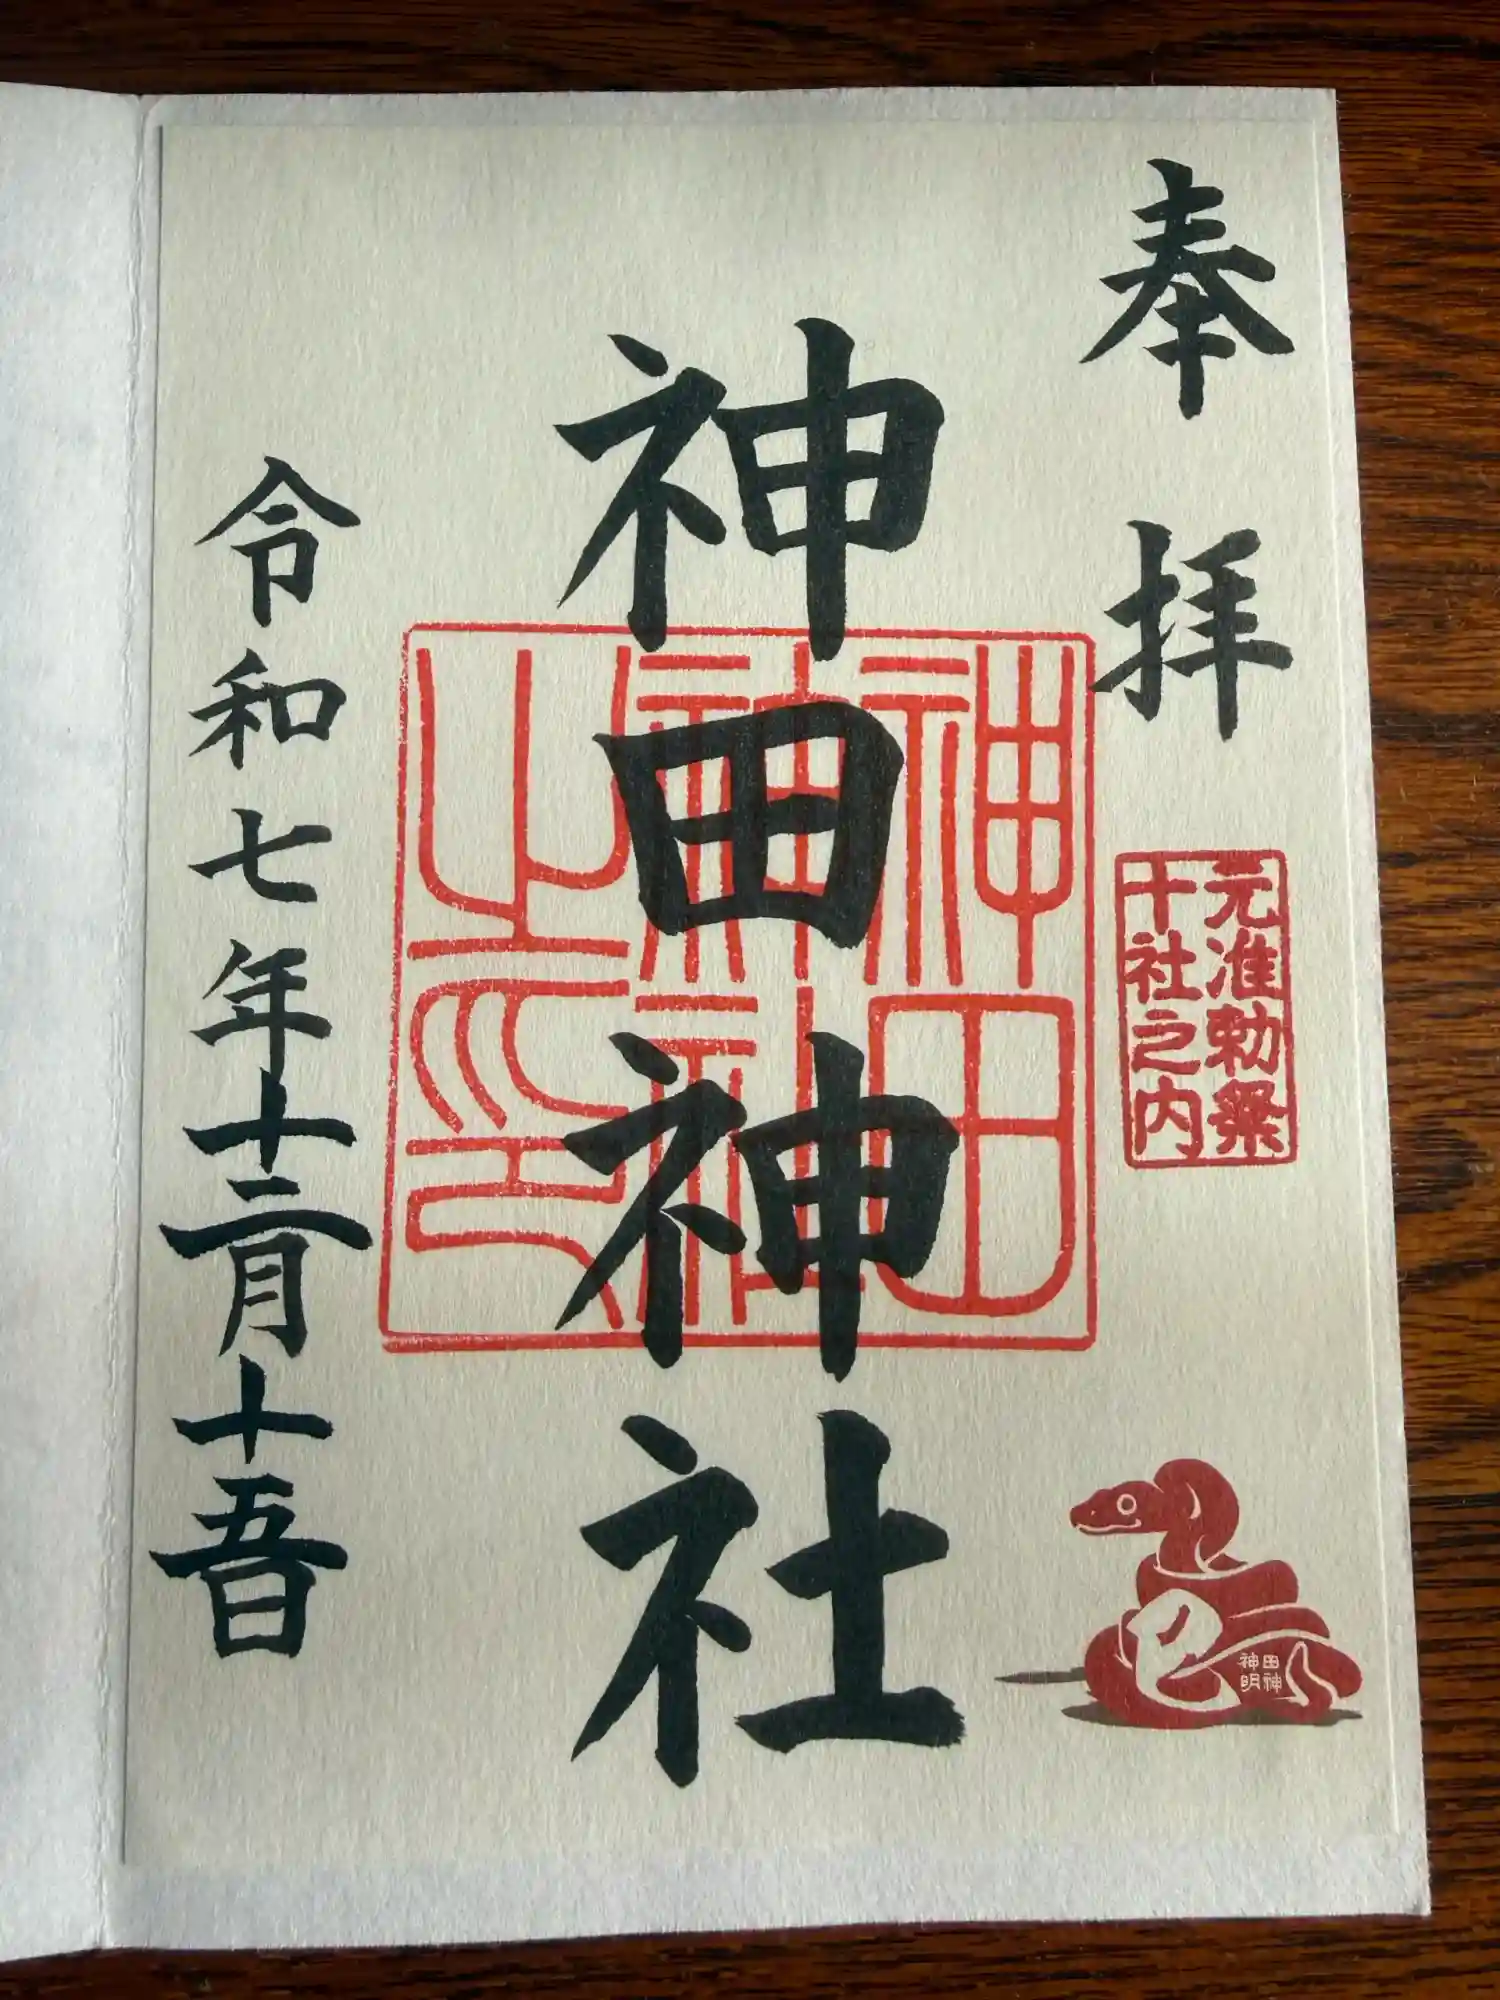 奉拝
元准勅祭
十社之内
神田神社
神田
神社
之印
巳
田神
神明
令和七年十二月十五日